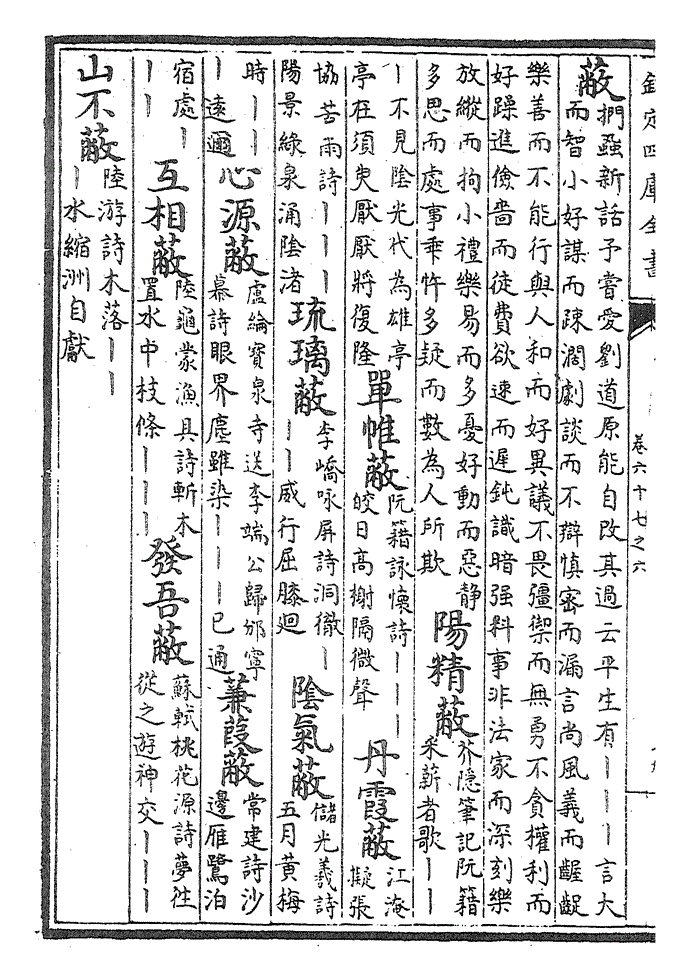 欽定四庫全書
卷六十七之六
蔽
捫蝨新話予嘗愛劉道原能自改其過云平生有丨丨丨言大
而智小好謀而疎濶劇談而不辯慎密而漏言尚風義而齷齪
樂善而不能行與人和而好異議不畏彊禦而無勇不貪權利而
好躁進儉嗇而徒費欲速而遲鈍識暗强料事非法家而深刻樂
放縱而拘小禮樂易而多憂好動而惡静
多思而處事乖忤多疑而數為人所欺
陽精蔽
芥隱筆記阮籍
采薪者歌丨丨
丨不見陰光代為雄亭
亭在須臾厭厭將復隆
單帷蔽
阮籍詠懷詩丨丨丨
皎日高榭隔微聲
丹霞蔽
江淹
擬張
協苦雨詩丨丨丨
陽景緑泉涌陰渚
琉璃蔽
李嶠咏屏詩洞徹丨
丨丨威行屈膝迴
陰氣蔽
儲光羲詩
五月黄梅
時丨丨丨
丨遠邇
心源蔽
盧綸寳泉寺送李端公歸邠寧
幕詩眼界塵雖染丨丨丨已通
蒹葭蔽
常建詩沙
邊雁鷺泊
宿處丨
丨丨
互相蔽
陸龜蒙漁具詩斬木
置水中枝條丨丨丨
發吾蔽
蘇軾桃花源詩夢往
從之遊神交丨丨丨
山不蔽
陸游詩木落丨丨
丨水縮洲自獻